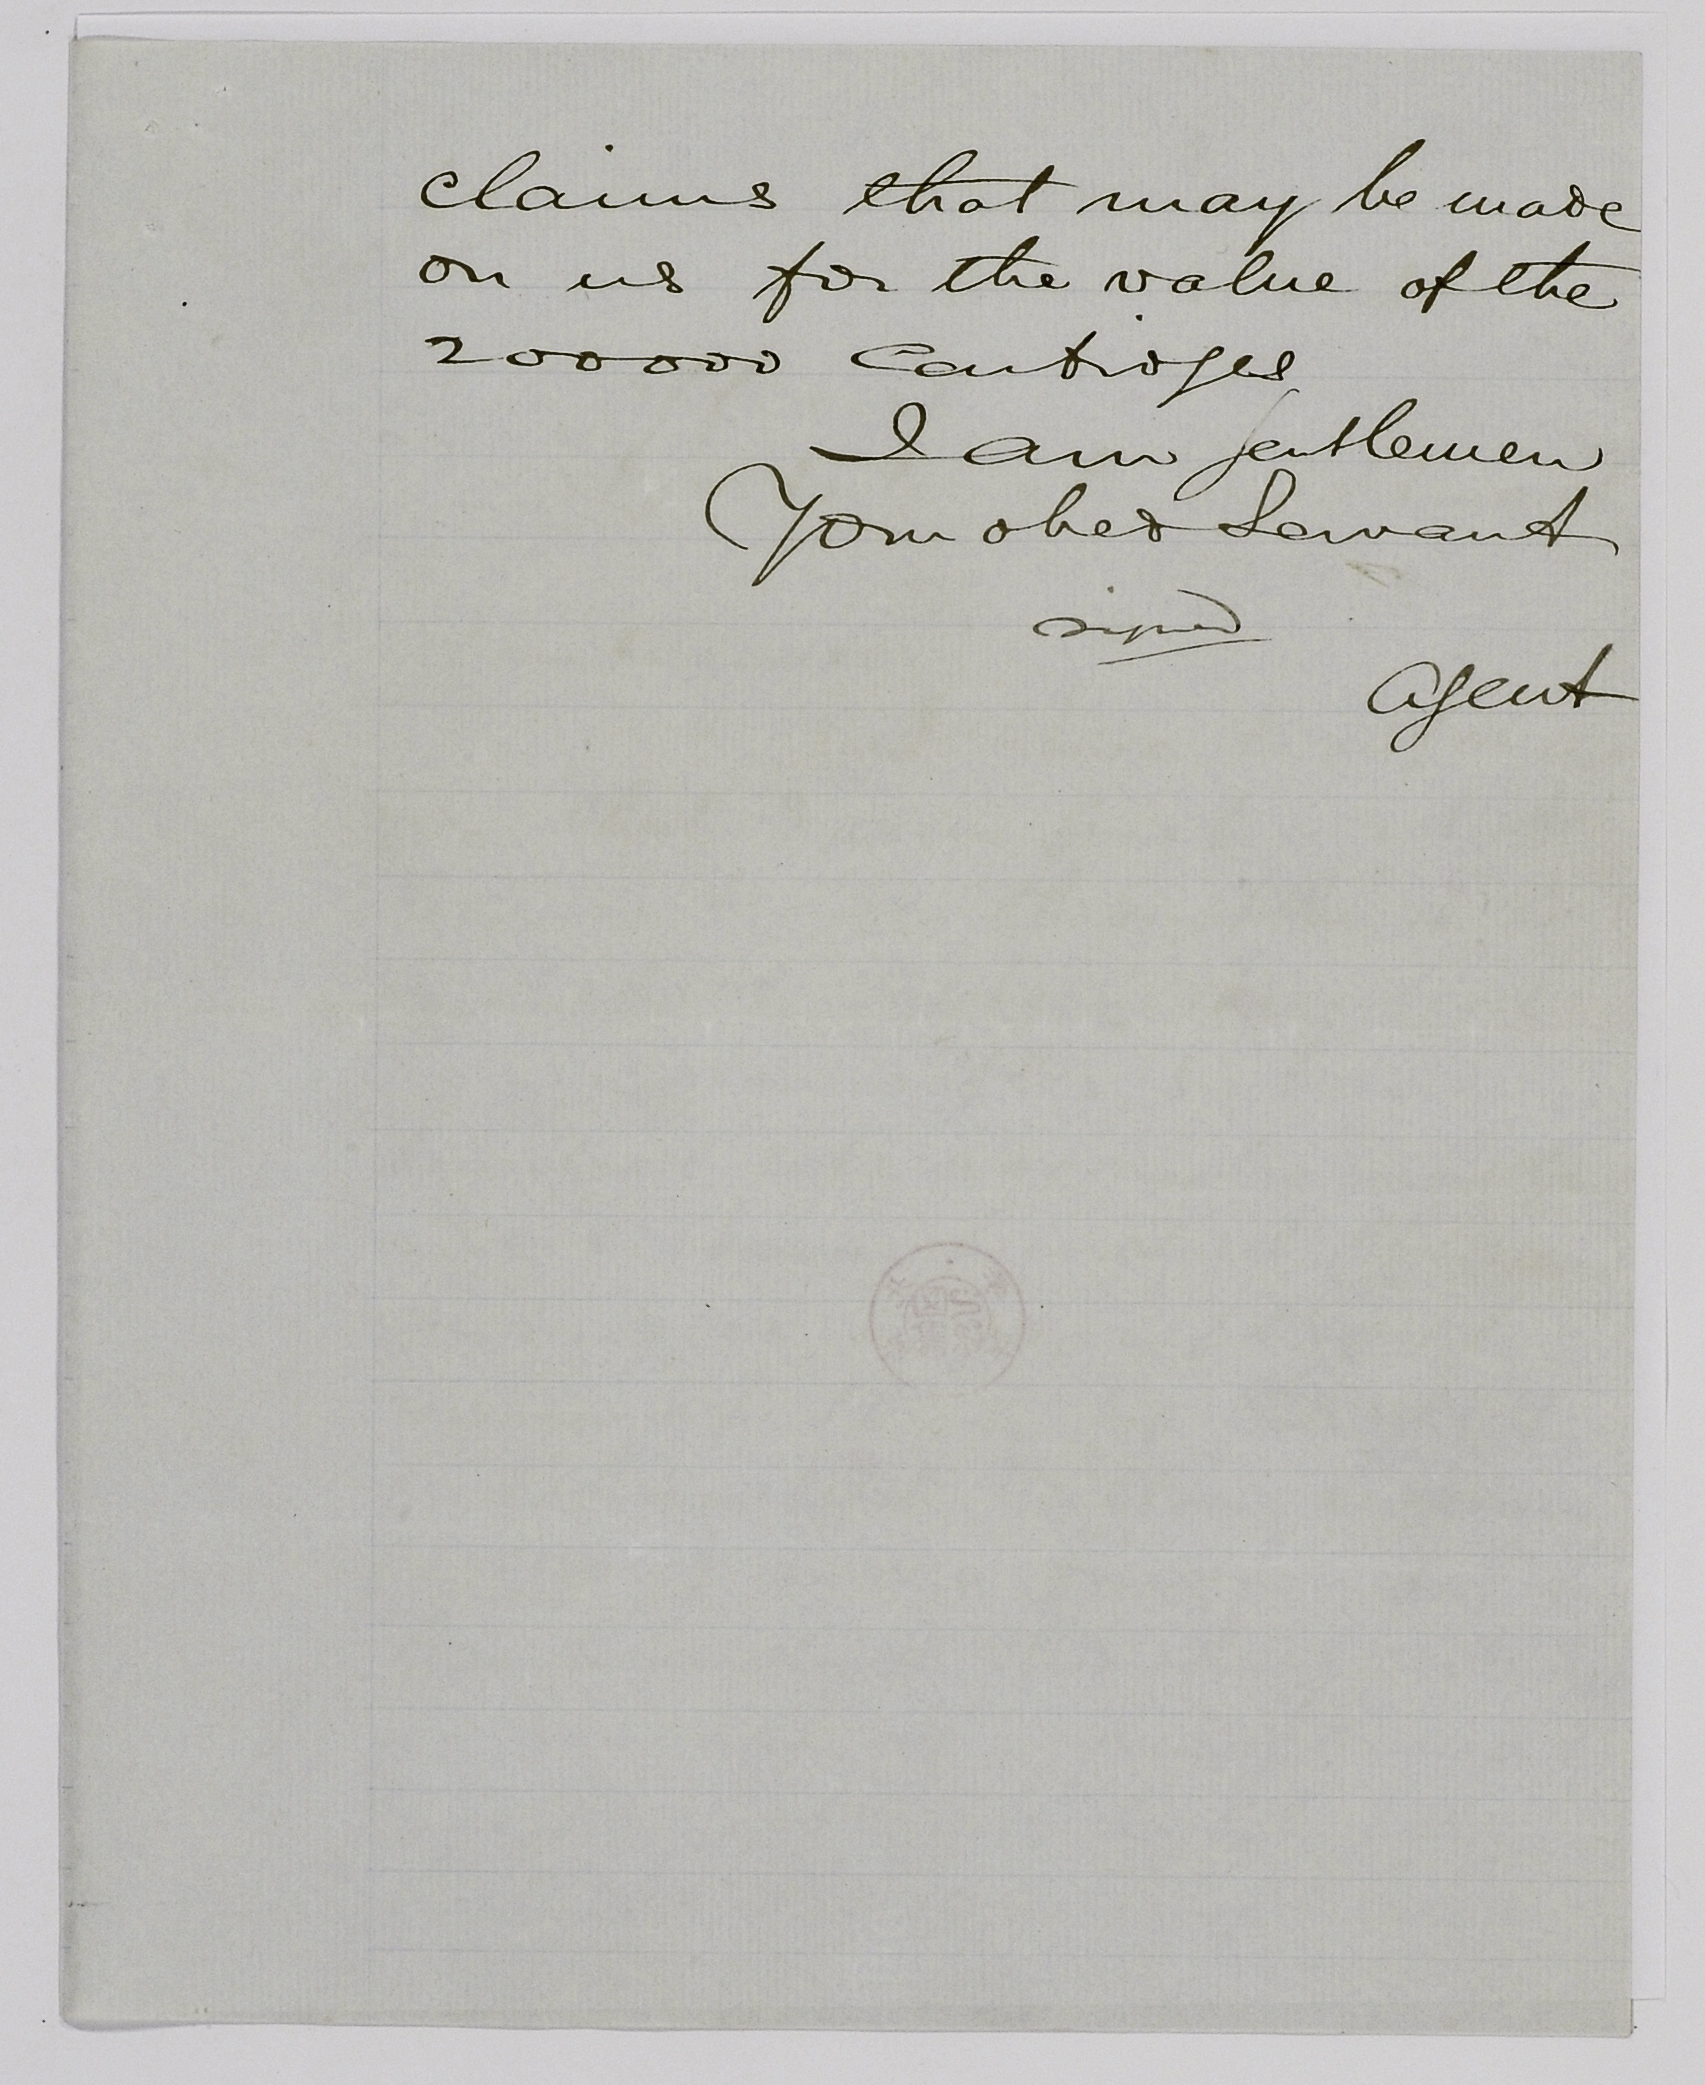 claims that may be made
on us for the value of the
200000 Cartridges
I am gentlemen
Your obed Servant
signed
Agent